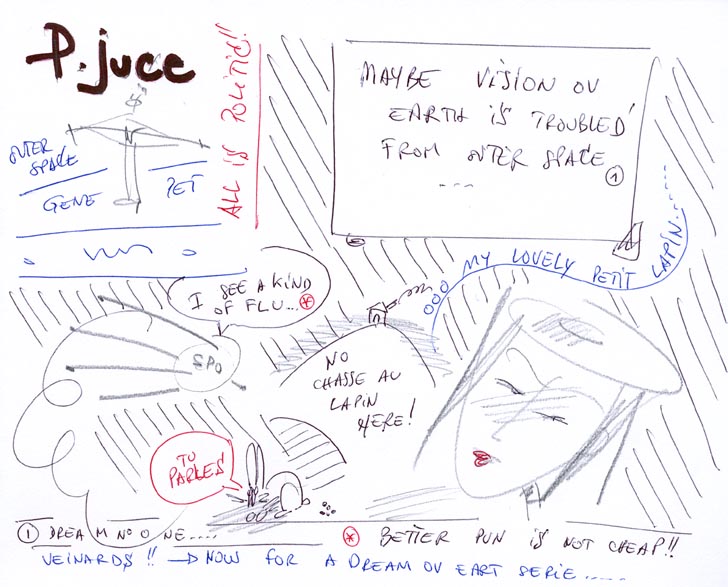 P. juce
ALL IS POLITIC!!
OUTER
SPACE
GENE
PET
MAYBE VISION OV
EARTH IS TROUBLED
FROM OUTER SPACE
...
1
MY LOVELY PETIT LAPIN......
I SEE A KIND
OF FLU...*
SPO
NO
CHASSE AU
LAPIN
HERE!
TU
PARLES
1 DREAM NO ONE.....
* BETTER PUN IS NOT CHEAP!!
VEINARDS!! → NOW FOR A DREAM OV EART SERIE......